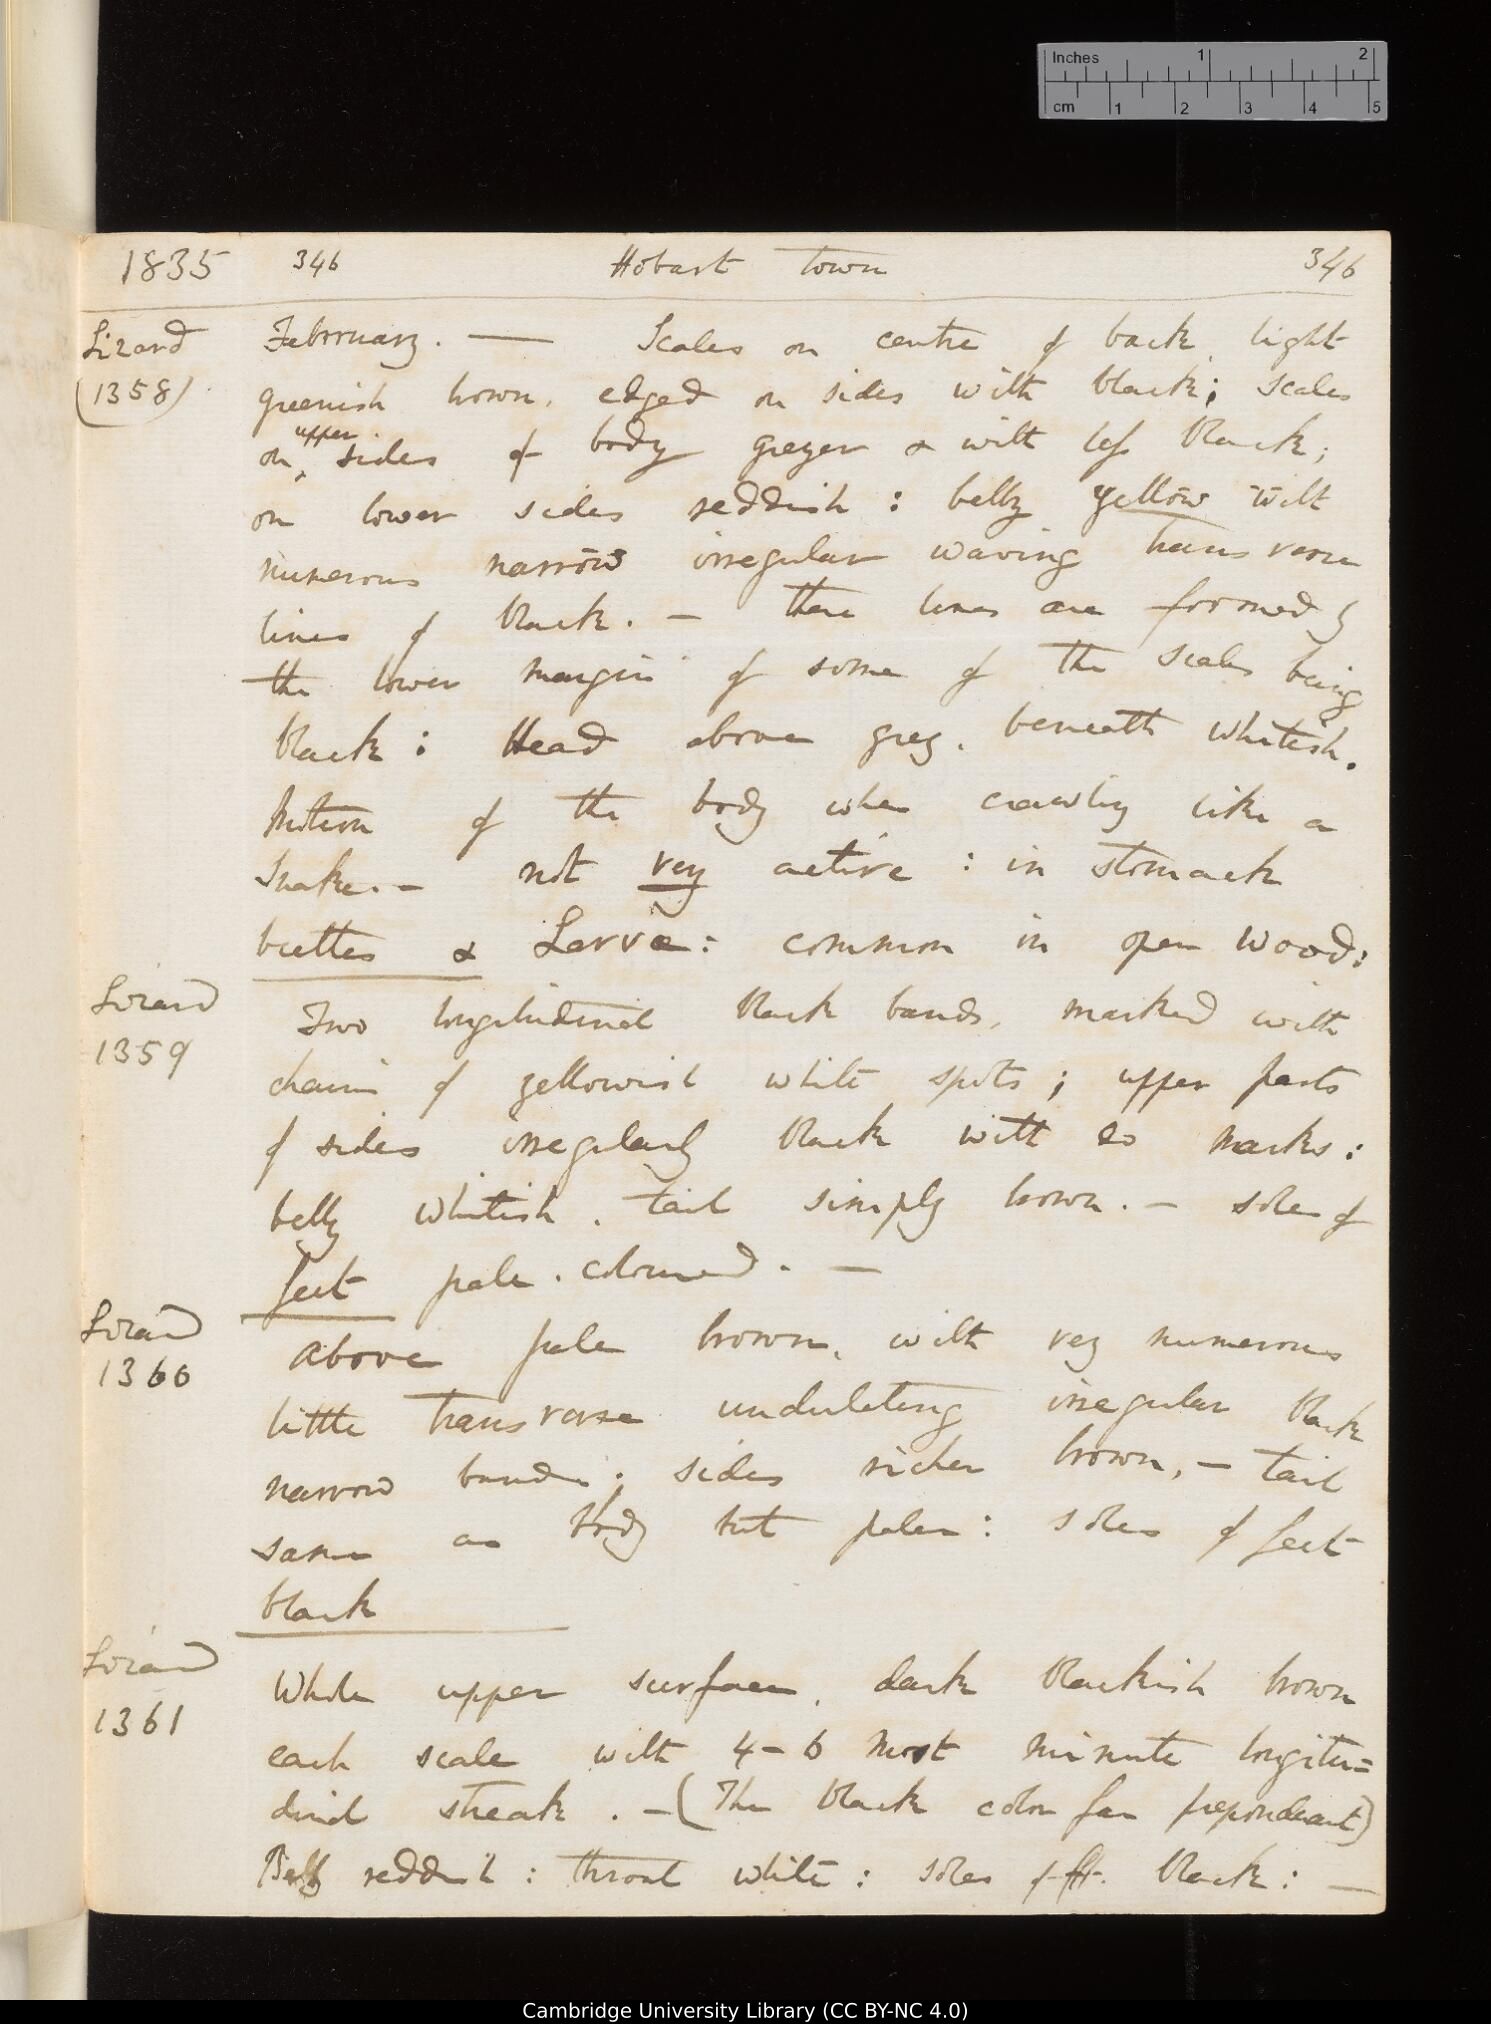 Inches 1 2
cm 1 2 3 4 5
1835 346 Hobart Town 346
Lizard
(1358)
February. — Scales on centre of back, light
greenish brown, edged on sides with black; scales
on upper sides of body greyer & with less black;
on lower sides reddish: belly yellow with
numerous narrow irregular waving transverse
lines of black. — these lines are formed by
the lower margin of some of the scales being
black: Head above grey, beneath whitish.
Motion of the body when crawling like a
snake. — not very active: in stomach
beetles & Larvæ: common in open wood:
Lizard
1359
Two longitudinal black bands, marked with
chain of yellowish white spots; upper parts
of sides irregularly black with so marks:
belly whitish, tail simply brown. — soles of
feet pale-coloured. —
Lizard
1360
Above pale brown, with very numerous
little transverse undulating irregular black
narrow bands; sides richer brown, — tail
same as body but paler: soles of feet
black
Lizard
1361
Whole upper surface, dark blackish brown
each scale with 4-6 most minute longitu=
dinal streak. — (The black color far preponderant)
Belly reddish: throat white: soles of ft. black: —
Cambridge University Library (CC BY-NC 4.0)